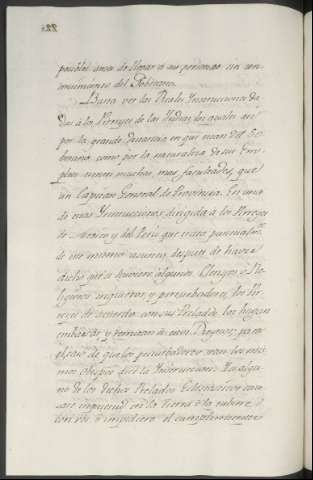 posibles antes de llegar a sus personas sin con-
nocimiento del Soberano.
Basta ver las Reales Instrucciones da-
das a los Virreyes de las Indias los quales asi
por la grande distancia en que estan del So-
berano como por la naturaleza de sus Em-
pleos tienen muchas mas facultades, que
un Capitan General de Provincia. En una
de estas Ynstrucciones dirigida a los Virreyes
de Mexico y del Perú que trata puntualm.te
de este mismo asunto, despues de haver
dicho que si huviere algunos Clerigos o Re-
ligiosos inquietos y perturbadores, los Vir-
reyes de acuerdo con sus Prelados los hagan
embarcar y
a estos Reynos; para
el caso de que los perturbadores sean los mis-
mos obispos dice la Instruccion: Si algu-
no de los dichos Prelados Eclesiasticos cau-
sare inquietud en la tierra o la
o impidiere el cumplimiento